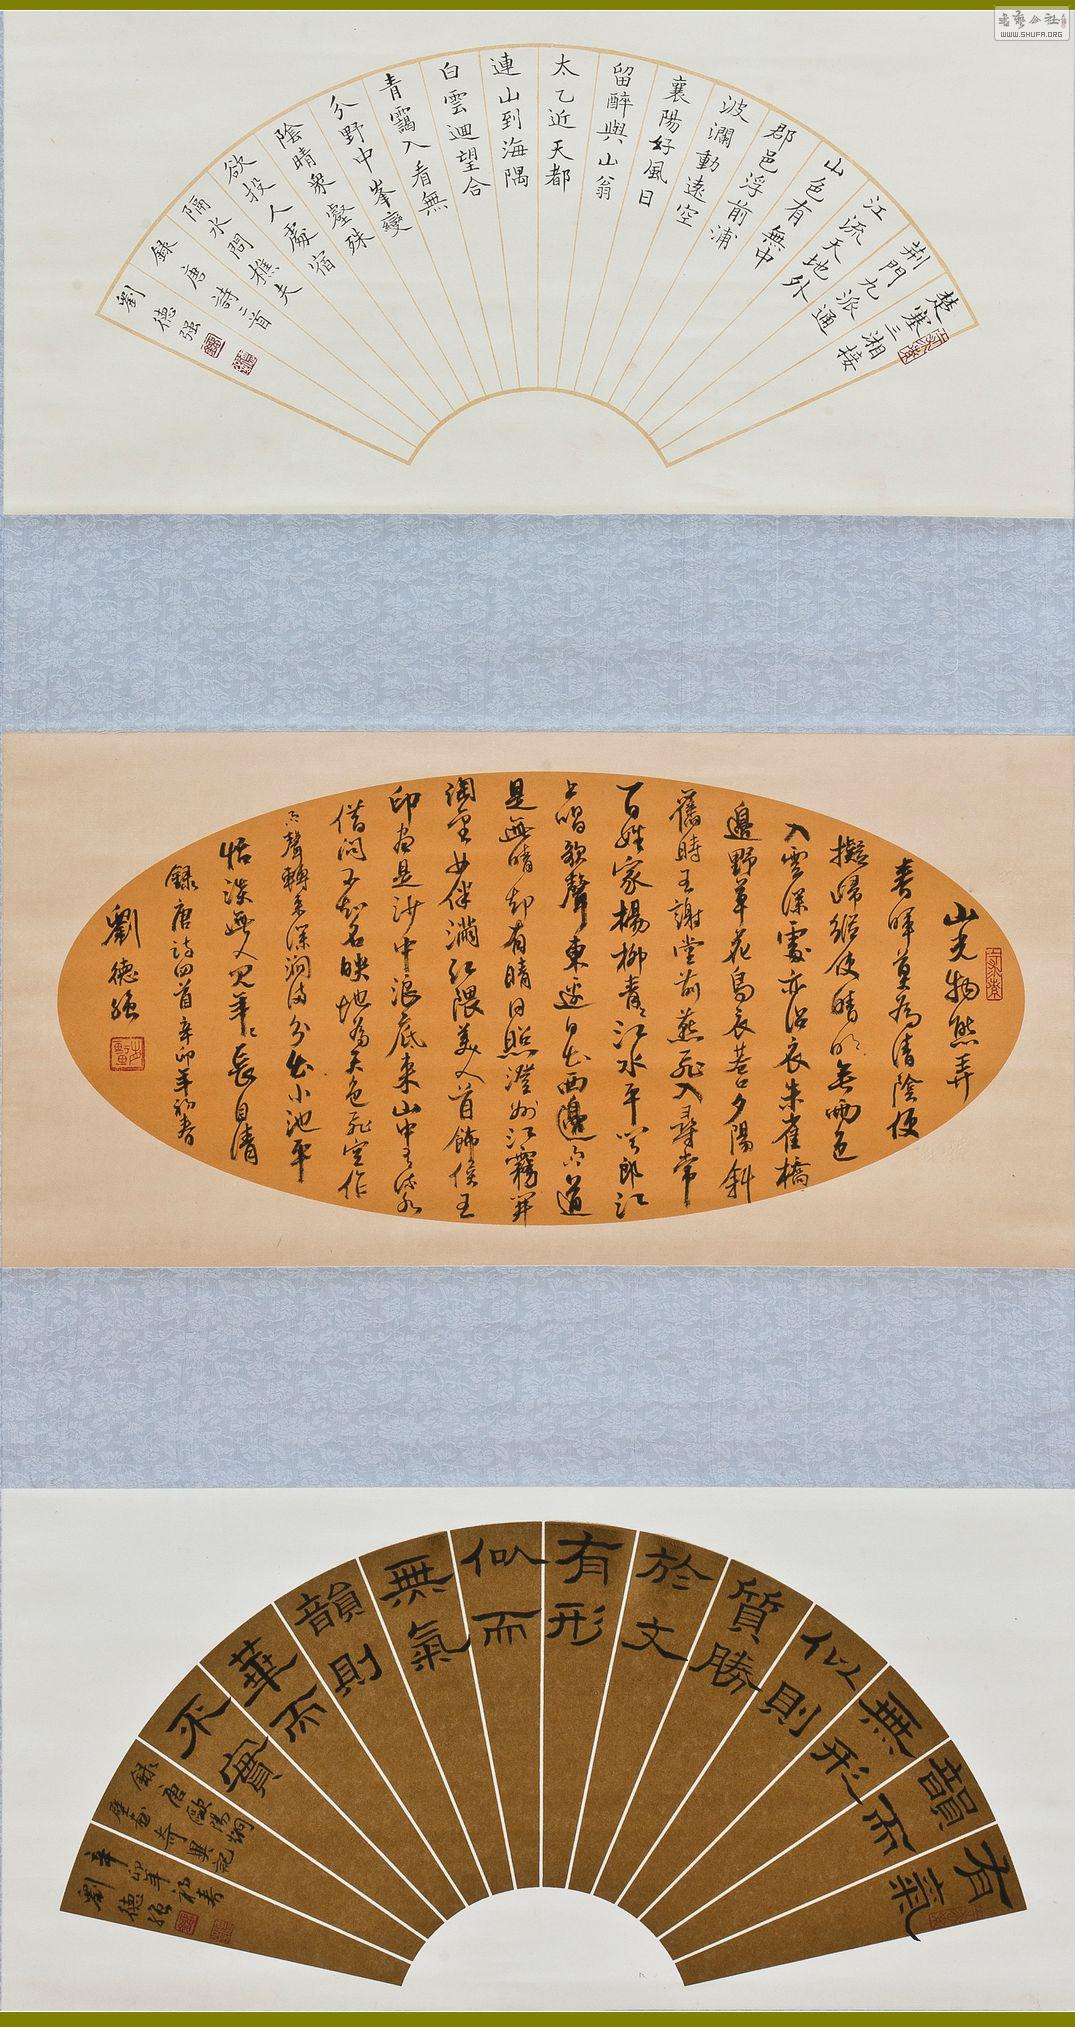 书艺公社
WWW.SHUFA.ORG
楚塞三湘接
荆門九派通
江流天地外
山色有無中
郡邑浮前浦
波瀾動遠空
襄陽好風日
留醉與山翁
太乙近天都
連山到海隅
白雲迴望合
青靄入看無
分野中峯變
陰晴衆壑殊
欲投人處宿
隔水問樵夫
錄唐詩二首
劉德强
山光物態弄
春暉莫為清陰便
擬歸縱使晴明無雨色
入雲深處亦沾衣朱雀橋
邊野草花烏衣巷口夕陽斜
舊時王謝堂前燕飛入尋常
百姓家楊柳青〻江水平聞郎江
上唱歌聲東邊日出西邊雨道
是無晴却有晴日照澄洲江霧開
淘金女伴滿江隈美人首飾侯王
印盡是沙中浪底來山中有流水
借問不知名映地為天色飛空作
雨聲轉來深澗滿分出小池平
恬淡無人見年〻長自清
錄唐詩四首辛卯年初春
劉德强
有氣
韻而
無形
似則
質勝
於文
有形
似而
無氣
韻則
華而
不實
錄唐歐陽炯
壁画奇異記
辛卯年初春
劉德强